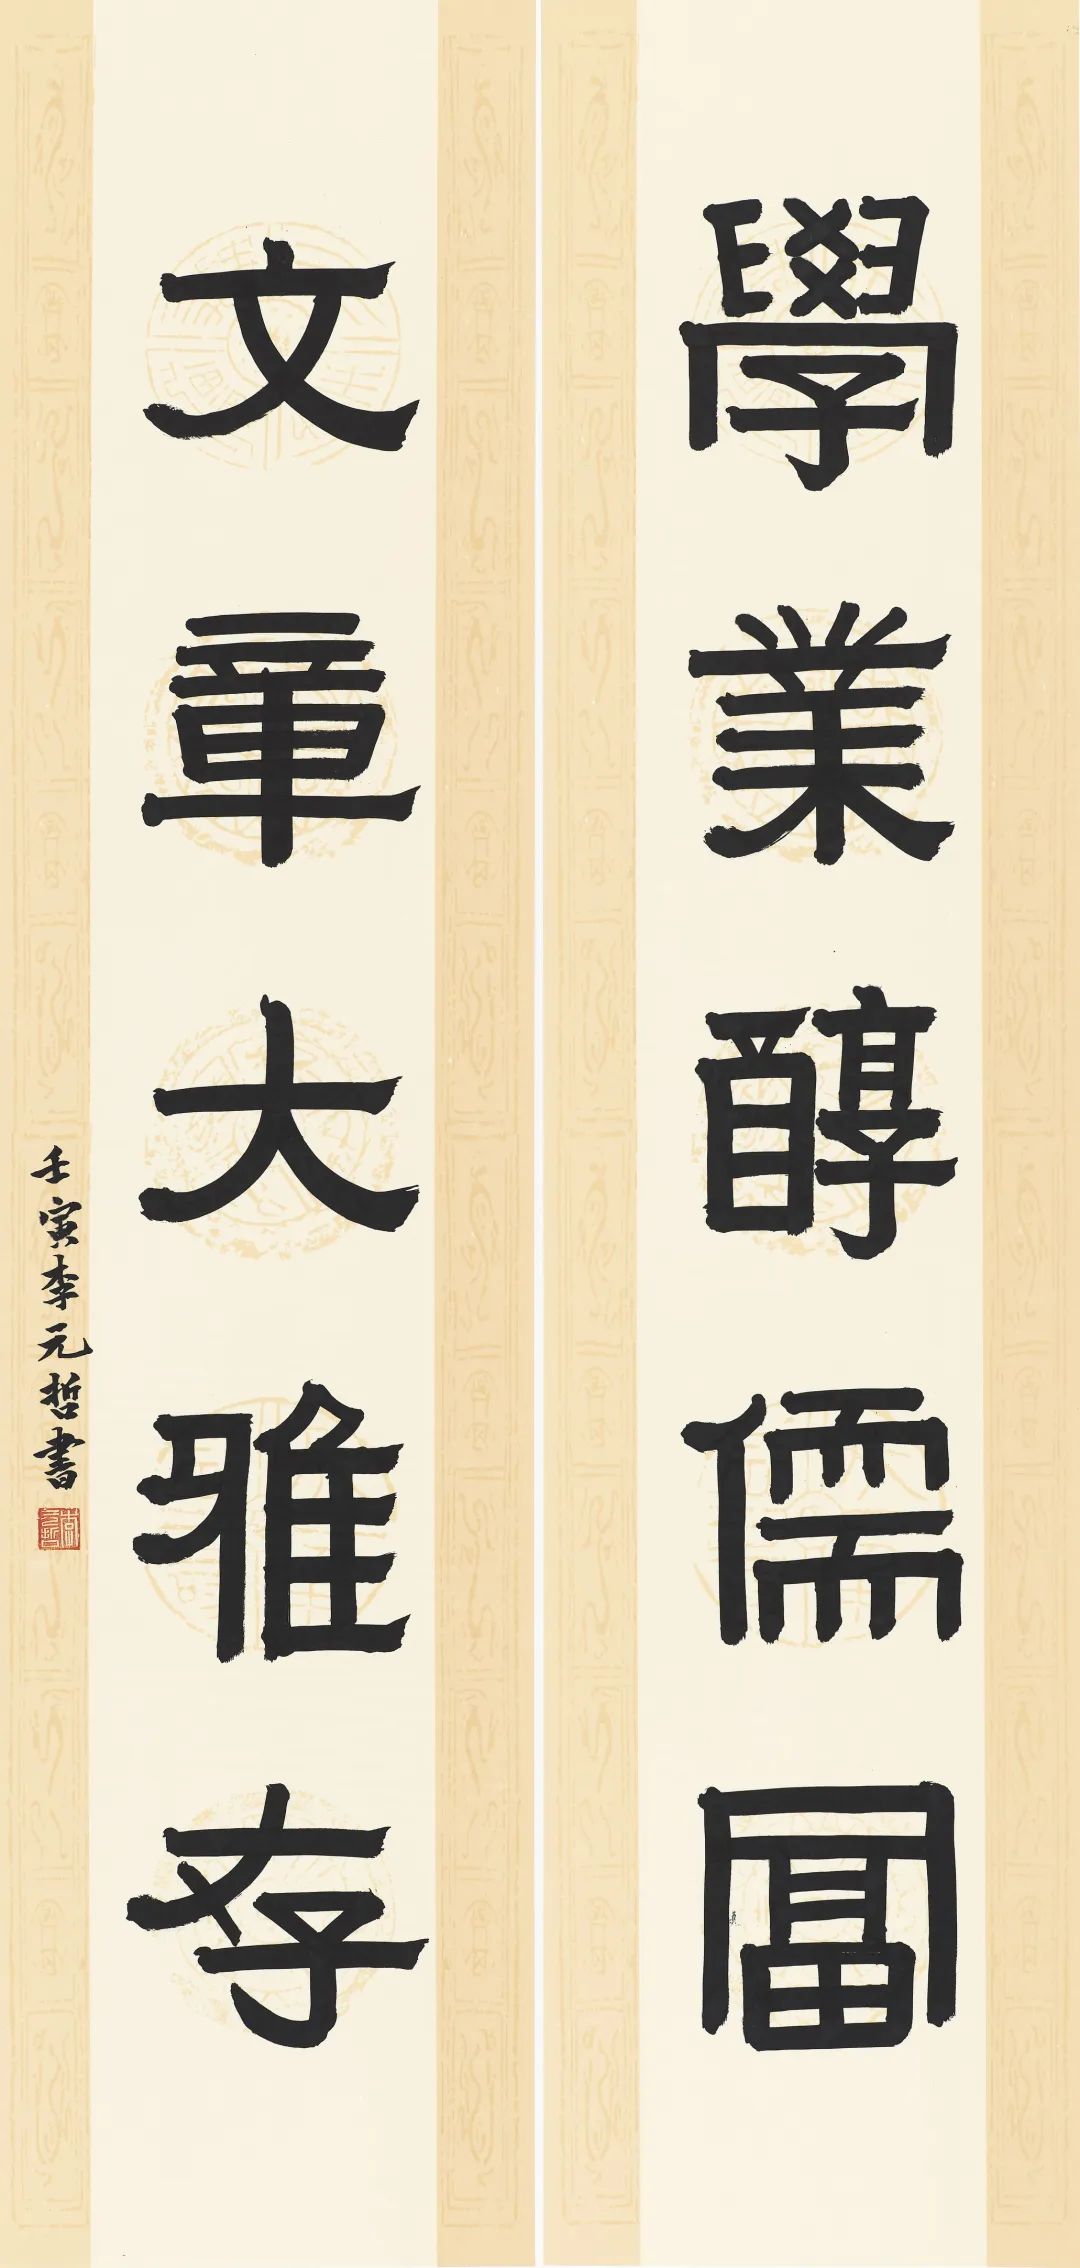 學業醇儒冨
文章大雅存
壬寅李元哲書